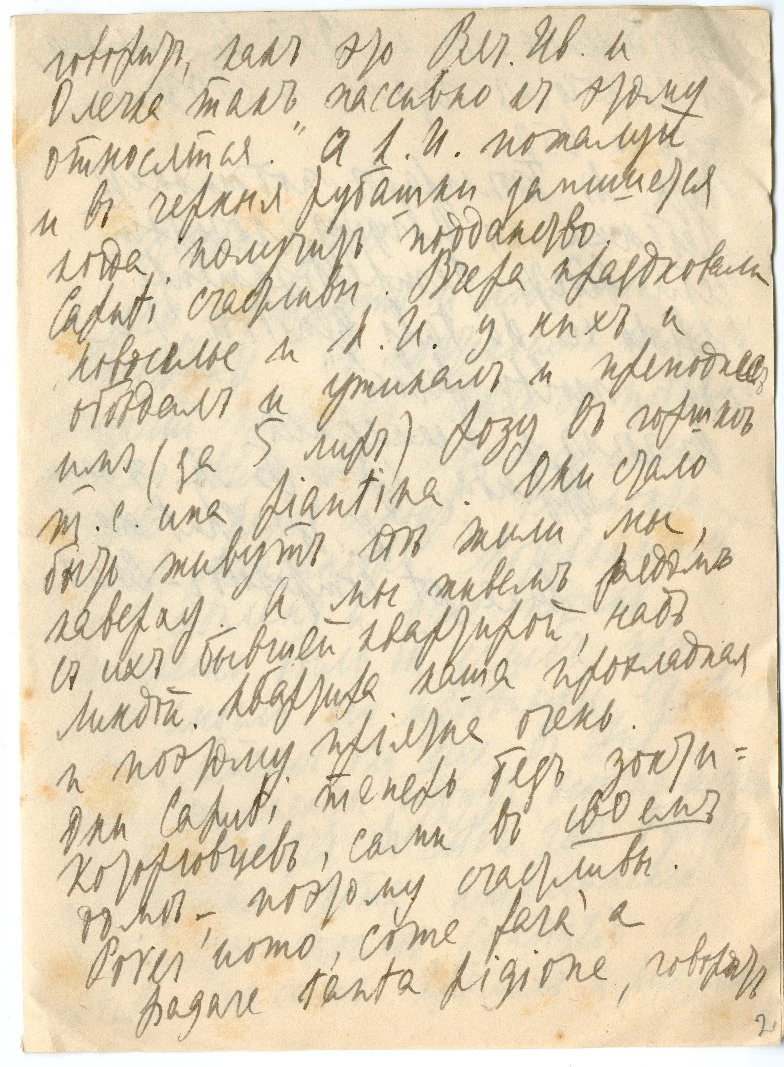 говорить, какъ это Вяч. Ив. и
Олечка такъ пассивно къ этому
относятся." А Л. И. пожалуй
и въ черныя рубашки запишется
когда получитъ подданство.
Caputi счастливы. Вчера праздновали
новоселье и Л. И. у нихъ и
обѣдалъ и ужиналъ и преподнесъ
имъ (за 5 лиръ) розу въ горшкѣ
т. е. una piantina. Они стало
быть живутъ гдѣ жили мы,
наверху. А мы живемъ рядомъ
съ ихъ бывшей квартирой, надъ
Линдой. Квартира наша прохладная
и поэтому пріятна очень.
Они Caputi теперь безъ
сами въ своемъ
домѣ, поэтому счастливы.
Pover' uomo, come farà a
pagare tanta pigione, говорятъ
2